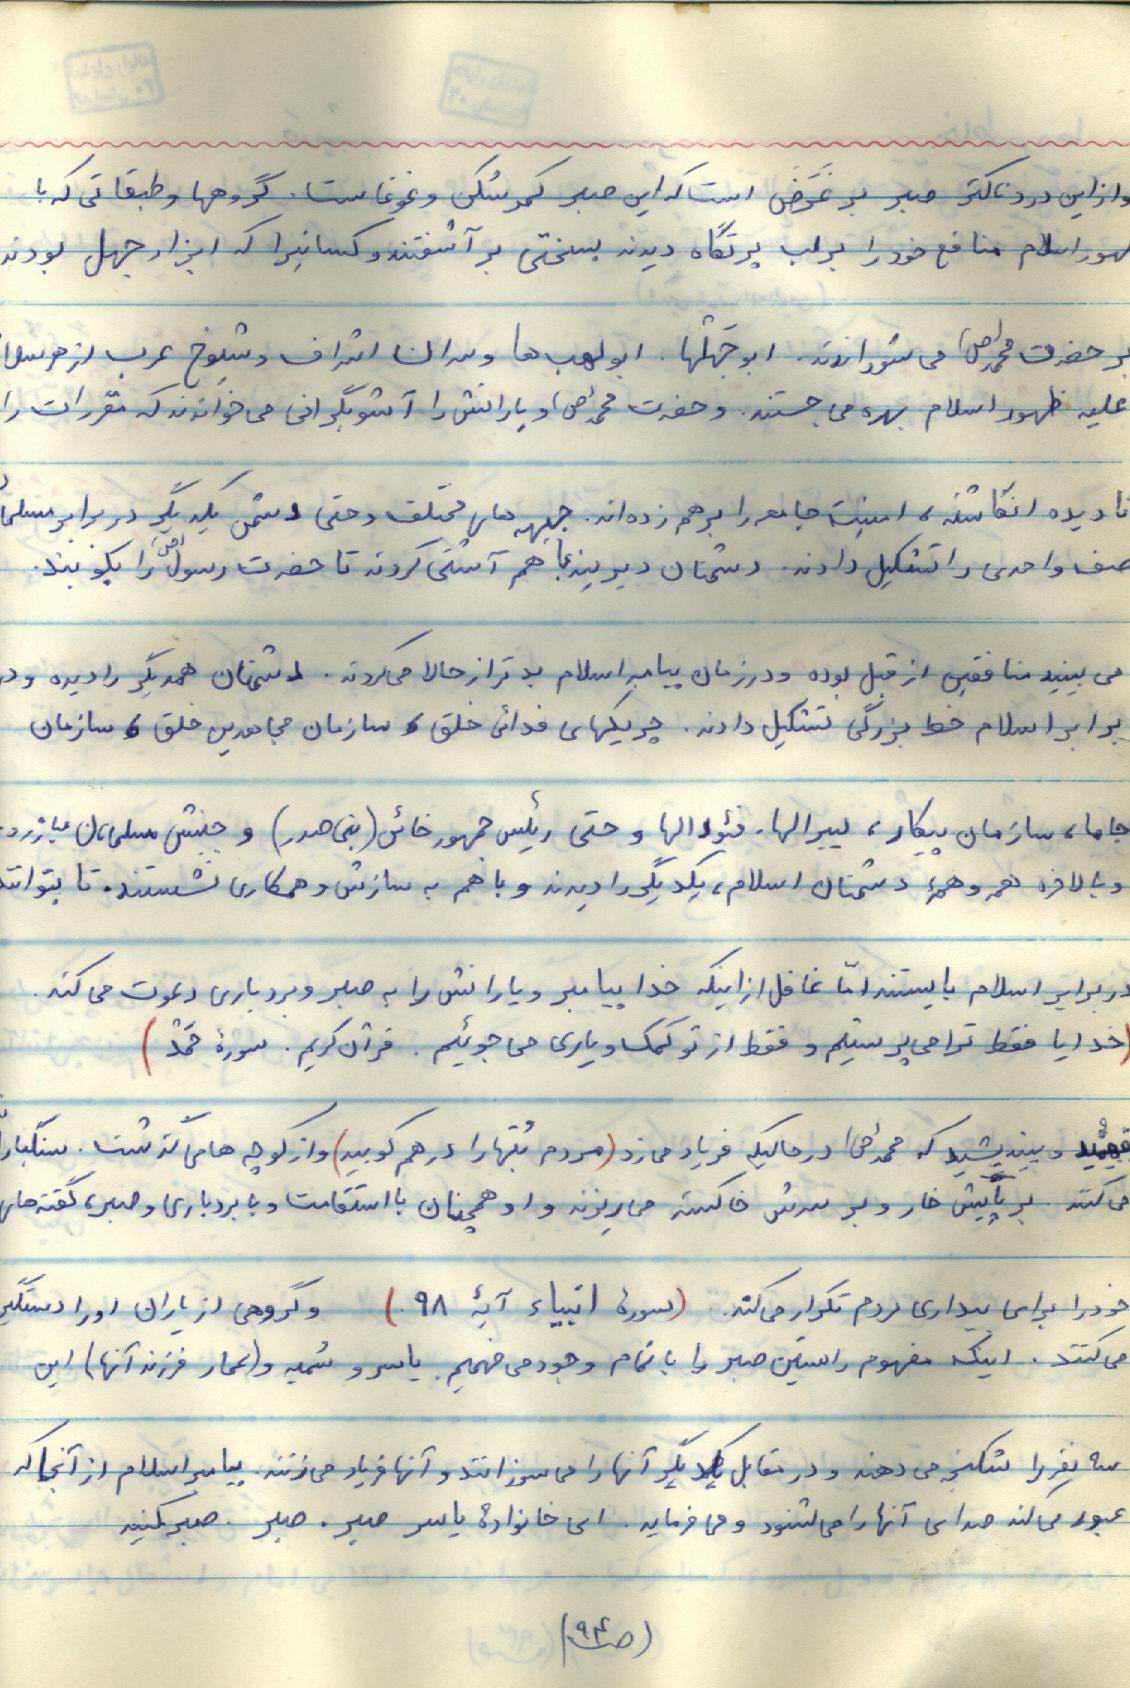 و از این دردناکتر صبر بر غَرَض است که این صبر کمرشکن و غوغاست. گروهها و طبقاتی که با
ظهور اسلام منافع خود را بر لب پرتگاه دیدند بسختی بر آشفتند و کسانیرا که ابزار جهل بودند
بر حضرت محمد(ص) می شوراندند. ابوجَهْلها. ابولهب ها و سران اشراف و شیوخ عرب از هر سلاح
علیه ظهور اسلام بهره می جستند. و حضرت محمد(ص) و یارانش را آشوبگرانی می خواندند که مقررات را
نادیده انگاشته، امنیت جامعه را برهم زده‌اند. جبهه های مختلف و حتی دشمن یکدیگر در برابر مسلمانان
صف واحدی را تشکیل دادند. دشمنان دیرینه با هم آشتی کردند تا حضرت رسول(ص) را بکوبند.
می بینید منافقین از قبل بوده و در زمان پیامبر اسلام بدتر از حالا می کردند. دشمنان همدیگر را دیده و در
برابر اسلام خط بزرگی تشکیل دادند. چریکهای فدائی خلق، سازمان مجاهدین خلق، سازمان
جاما، سازمان پیکار، لیبرالها. فئودالها و حتی رئیس جمهور خائن (بنی صدر) و جنبش مسلمانان مبارزو.
و بالاخره همه و همهٔ دشمنان اسلام، یکدیگر را دیدند و با هم به سازش و همکاری نشستند. تا بتوانند
در برابر اسلام بایستند امّا غافل از اینکه خدا پیامبر و یارانش را به صبر و بردباری دعوت می کند.
(خدایا فقط ترا می پرستیم و فقط از تو کمک و یاری می جوئیم. قرآن کریم. سورهٔ حَمْد)
بفهمید و بیندیشید که محمد(ص) در حالیکه فریاد می زد (مردم بُتها را در هم کوبید) و از کوچه ها می گذشت. سنگباران
می کنند. بر پایش خار و بر سرش خاکستر می ریزند و او همچنان با استقامت و با بردباری و صبر، گفته های
خود را برای بیداری مردم تکرار می کند. (سورهٔ انبیاء آیهٔ ۹۸.) و گروهی از یاران او را دستگیر
می کنند. اینک مفهوم راستین صبر را با تمام وجود می فهمیم. یاسر و سُمیه و (عمار فرزند آنها) این
سه نفر را شکنجه می دهند و در مقابل یکدیگر آنها را می سوزانند و آنها فریاد می زنند. پیامبر اسلام از آنجا که
عبور می کند صدای آنها را می شنود و می فرماید. ای خانوادهٔ یاسر صبر. صبر. صبر بکنید
(ص ۹۴)